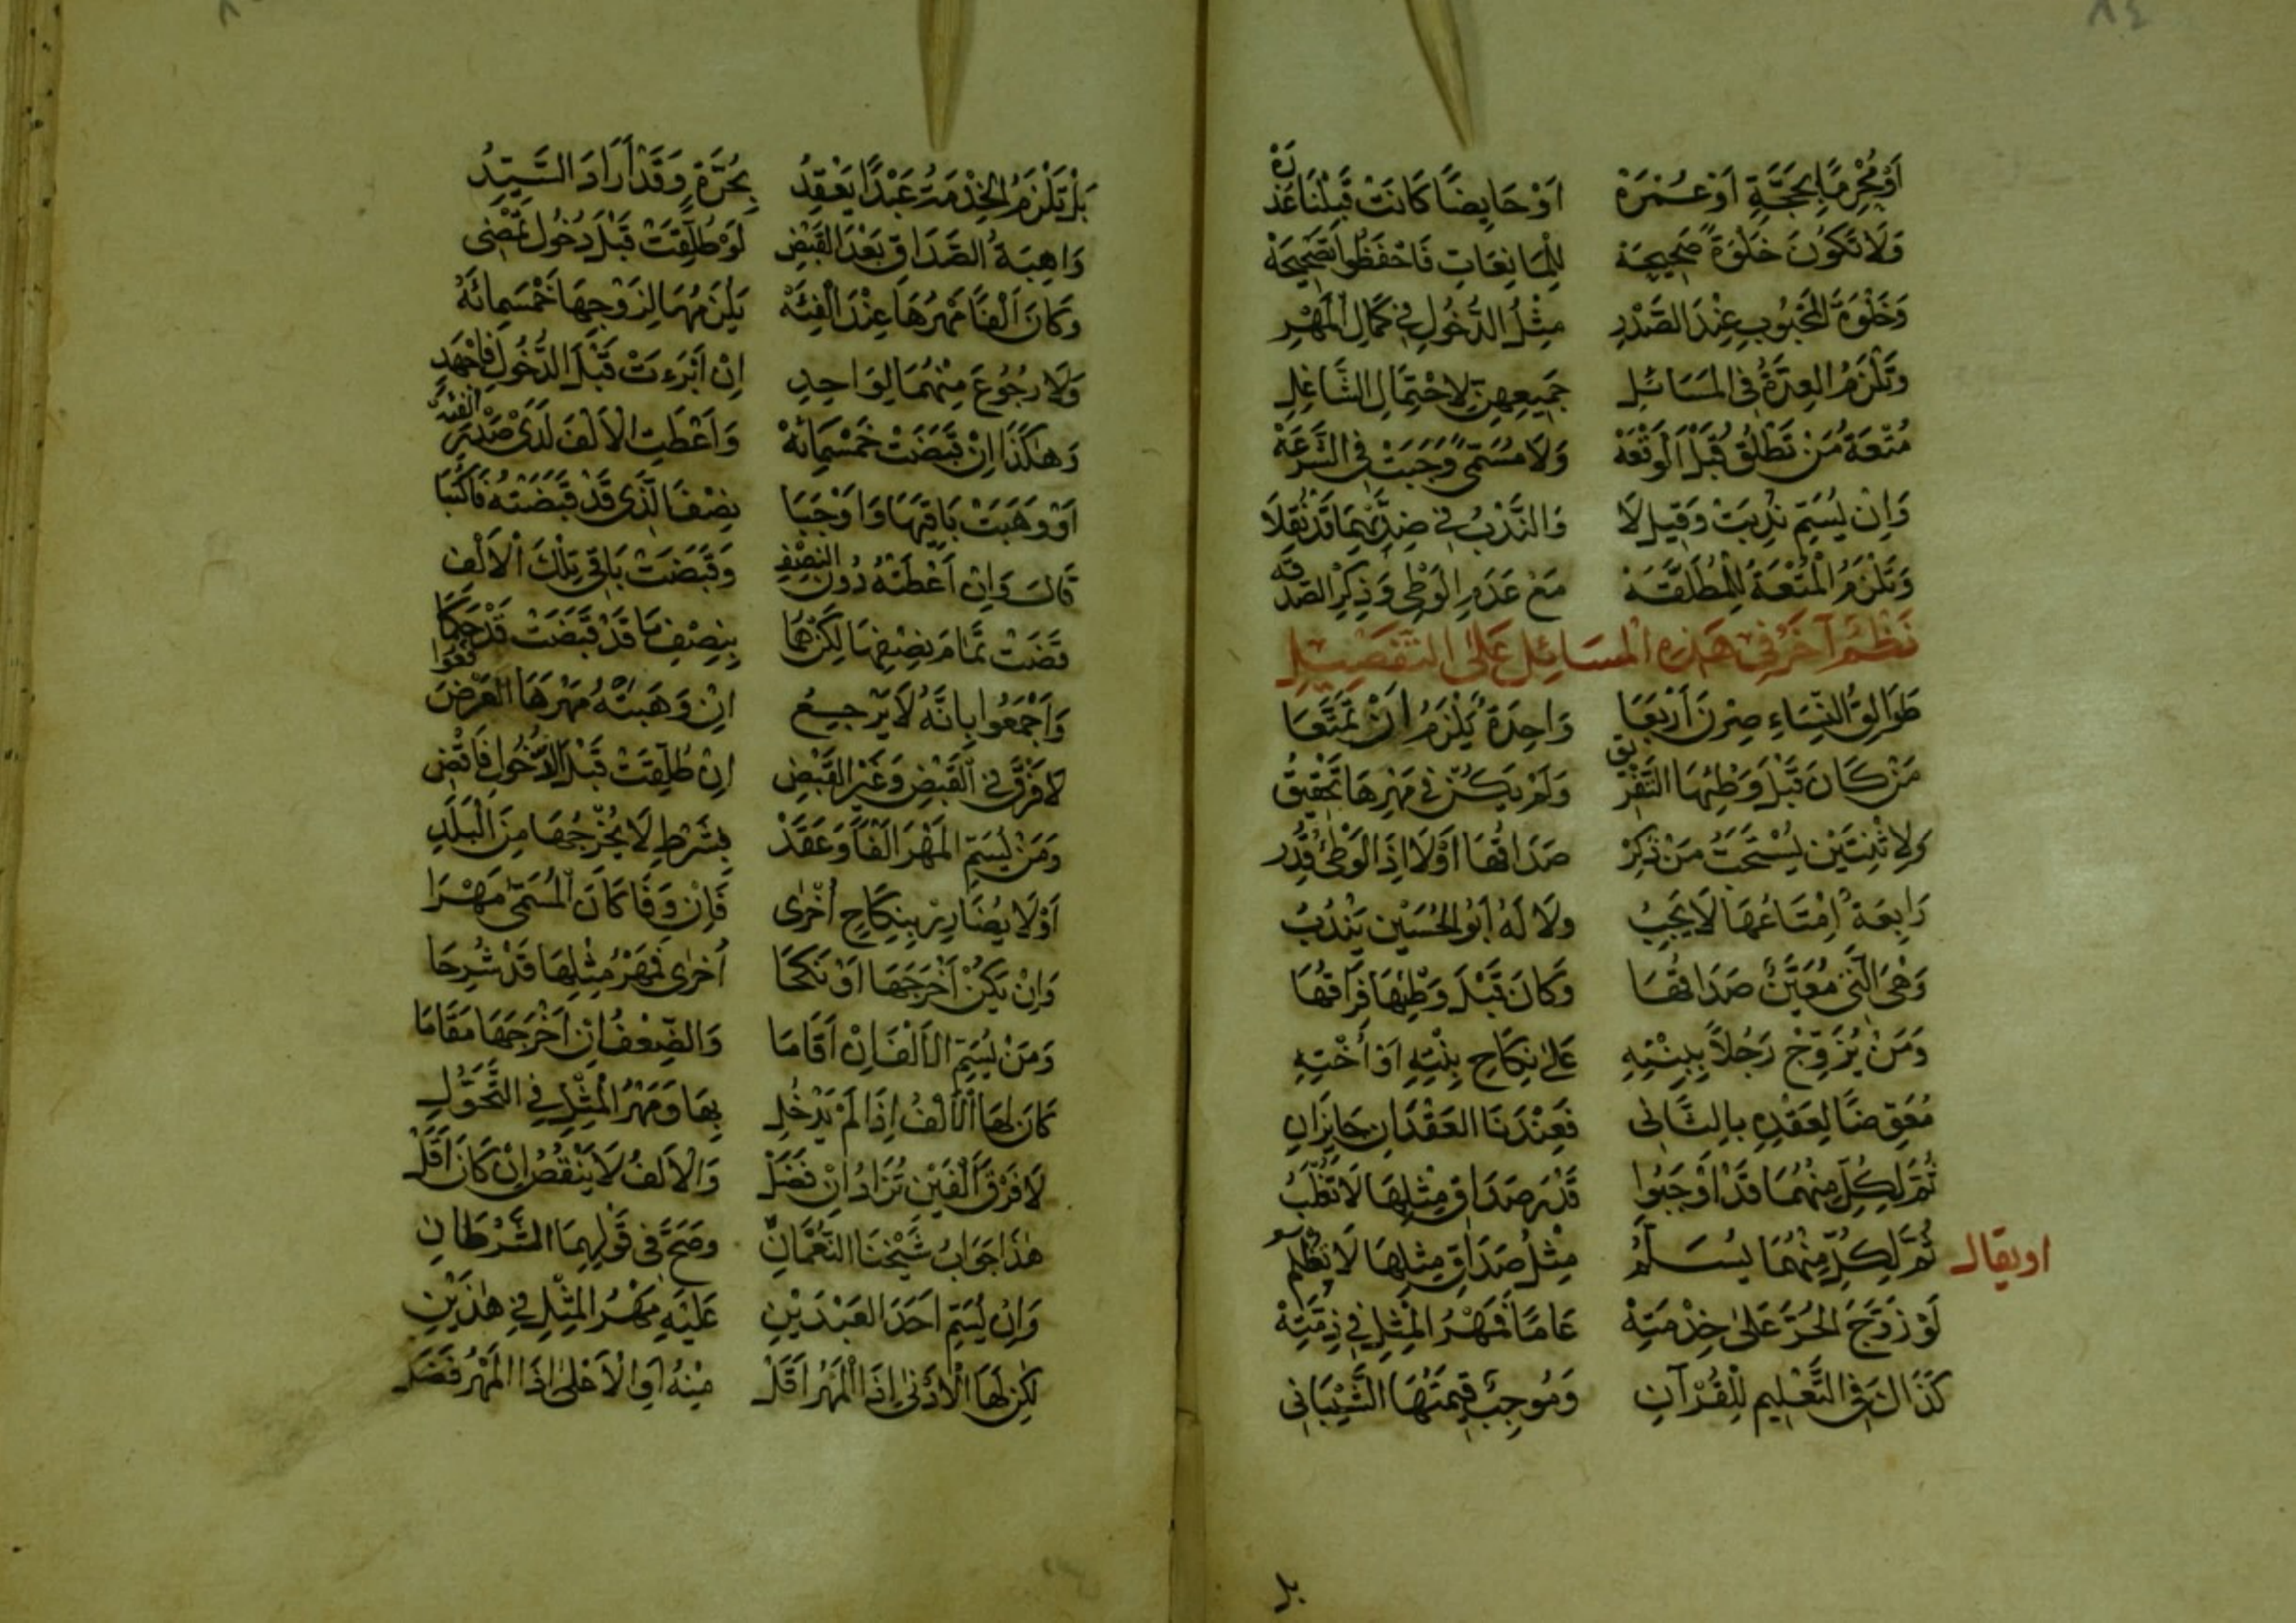 ٨٤
أَوْ مُحْرِمًا بِحَجَّةٍ أَوْ عُمْرَةْ أَوْ حَايِضًا كَانَتْ قُبَيْلَنَا عَذْرَهْ
وَلَا تَكُونُ خَلْوَةً صَحِيحَةْ لِلْمَانِعَاتِ فَاحْفَظُوا تَصْحِيحَهْ
وَخَلْوَةُ الْمَجْبُوبِ عِنْدَ الصَّدْرِ مِثْلُ الدُّخُولِ فِي كَمَالِ الْمَهْرِ
وَتَلْزَمُ الْعِدَّةُ فِي الْمَسَائِلِ جَمِيعِهِنَّ لِاحْتِمَالِ الشَّاغِلِ
مُتْعَةُ مَنْ تَطْلُقُ قَبْلَ الْوَقْعَهْ وَلَا مُسَمًّى وَجَبَتْ فِي الشِّرْعَهْ
وَإِنْ يُسَمِّ نُدِبَتْ وَقِيلَ لَا وَالنَّدْبُ فِي ضِدَّيْهِمَا قَدْ نُقِلَا
وَتَلْزَمُ الْمُتْعَةُ لِلْمُطَلَّقَهْ مَعْ عَدَمِ الْوَطْىِ وَذِكْرِ الصَّدُقَهْ
نَظْمٌ آخَرُ فِي هَذِهِ الْمَسَائِلِ عَلَى التَّفْصِيلِ
طَوَالِقُ النِّسَاءِ صِرْنَ أَرْبَعَا وَاحِدَةٌ يَلْزَمُ أَنْ تُمَتَّعَا
مَنْ كَانَ قَبْلَ وَطْئِهَا التَّفْرِيقُ وَلَمْ يَكُنْ فِي مَهْرِهَا تَحْقِيقُ
وَلِاثْنَتَيْنِ يُسْتَحَبُّ مَنْ ذُكِرْ صَدَاقُهَا أَوْ لَا إِذَا الْوَطْئُ قُدِرْ
رَابِعَةٌ إِمْتَاعُهَا لَا يَجِبُ وَلَا لَهُ أَبُو الْحُسَيْنِ يَنْدُبُ
وَهْيَ الَّتِي مُعَيَّنٌ صَدَاقُهَا وَكَانَ قَبْلَ وَطْئِهَا فِرَاقُهَا
وَمَنْ يُزَوِّجْ رَجُلًا بِبِنْتِهِ عَلَى نِكَاحِ بِنْتِهِ أَوْ أُخْتِهِ
مُعَوِّضًا لِعَقْدِهِ بِالثَّانِي فَعِنْدَنَا الْعَقْدَانِ جَايِزَانِ
ثُمَّ لِكُلٍّ مِنْهُمَا قَدْ أَوْجَبُوا قَدْرَ صَدَاقِ مِثْلِهَا لَا تُغْلَبُ
او يقال ثُمَّ لِكُلٍّ مِنْهُمَا يُسَلَّمُ مِثْلُ صَدَاقِ مِثْلِهَا لَا تُظْلَمُ
لَوْ زَوَّجَ الْحُرَّ عَلَى خِدْمَتِهْ عَامًا فَمَهْرُ الْمِثْلِ فِي ذِمَّتِهْ
كَذَاكَ فِي التَّعْلِيمِ لِلْقُرْآنِ وَمُوجِبٌ قِيمَتَهَا الشَّيْبَانِي
بل
بَلْ تَلْزَمُ الْخِدْمَةُ عَبْدًا يَعْقِدُ بِحُرَّةٍ وَقَدْ أَرَادَ السَّيِّدُ
وَاهِبَةُ الصَّدَاقِ بَعْدَ الْقَبْضِ لَوْ طُلِّقَتْ قَبْلَ دُخُولٍ تَمْضِي
وَكَانَ أَلْفًا مَهْرُهَا عِنْدَ الْفِئَهْ يَلْزَمُهَا لِزَوْجِهَا خَمْسُمِائَهْ
وَلَا رُجُوعَ مِنْهُمَا لِوَاحِدِ إِنْ أَبْرَءَتْ قَبْلَ الدُّخُولِ فَاجْهَدِ
وَهَكَذَا إِنْ قَبَضَتْ خَمْسَمِائَهْ وَأَعْطَتِ الْأَلْفَ لَدَى صَدْرِ الْفِئَهْ
أَوْ وَهَبَتْ بَاقِيَهَا وَأَوْجَبَا نِصْفَ الَّذِي قَدْ قَبَضَتْهُ فَاكْتُبَا
قَالَ وَإِنْ أَعْطَتْهُ دُونَ النِّصْفِ وَقَبَضَتْ بَاقِيَ تِلْكَ الْأَلْفِ
قَضَتْ تَمَامَ نِصْفِهَا لَكِنْ هُمَا بِنِصْفِ مَا قَدْ قَبَضَتْ قَدْ حَكَمَا
وَأَجْمَعُوا بِأَنَّهُ لَا يَرْجِعُ إِنْ وَهَبَتْهُ مَهْرَهَا الْعَرْضَ فَعُوا
لَا فَرْقَ فِي الْقَبْضِ وَغَيْرِ الْقَبْضِ إِنْ طُلِّقَتْ قَبْلَ الدُّخُولِ فَاقْضِ
وَمَنْ يُسَمِّ الْمَهْرَ أَلْفًا وَعَقَدْ بِشَرْطِ لَا يُخْرِجُهَا مِنَ الْبَلَدِ
أَوْ لَا يُضَارِرْ بِنِكَاحِ أُخْرَى فَإِنْ وَفَا كَانَ الْمُسَمَّى مَهْرَا
وَإِنْ يَكُنْ أَخْرَجَهَا أَوْ نَكَحَا أُخْرَى فَمَهْرُ مِثْلِهَا قَدْ شُرِحَا
وَمَنْ يُسَمِّ الْأَلْفَ إِنْ أَقَامَا وَالضِّعْفُ إِنْ أَخْرَجَهَا مَقَامَا
كَانَ لَهَا الْأَلْفُ إِذَا لَمْ يَدْخُلِ بِهَا وَمَهْرُ الْمِثْلِ فِي التَّحَوُّلِ
لَا فَرْقَ أَلْفَيْنِ تُزَادُ إِنْ فَضَلْ وَالْأَلْفُ لَا يَنْقُصُ إِنْ كَانَ أَقَلْ
هَذَا جَوَابُ شَيْخِنَا النُّعْمَانِ وَصَحَّ فِي قَوْلِهِمَا الشَّرْطَانِ
وَإِنْ يُسَمِّ أَحَدَ الْعَبْدَيْنِ عَلَيْهِ مَهْرُ الْمِثْلِ فِي هَذَيْنِ
لَكِنْ لَهَا الْأَدْنَى إِذَا الْمَهْرُ أَقَلْ مِنْهُ أَوِ الْأَعْلَى إِذَا الْمَهْرُ فَضَلْ